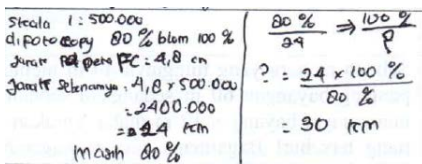 Skala 1 : 500.000
dipotocopy 80 % blom 100 %
Jarak Peta PC = 4,8 cm
Jarak Sebenarnya = 4,8 x 500.000
= 2400.000
= 24 km
Masih 80 %
80 % / 24 ⇒ 100 % / P
? = 24 x 100 % / 80 %
= 30 km